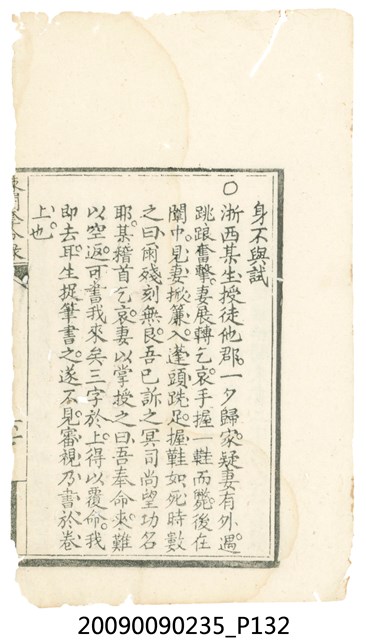 身不與試
○浙西某生授徒他郡一夕歸家疑妻有外遇
跳踉奮擊妻展轉乞哀手握一鞋而斃後在
闈中見妻掀簾入蓬頭跣足握鞋如死時數
之曰爾殘刻無良吾已訴之冥司尚望功名
耶某稽首乞哀妻以掌授之曰吾奉命來難
以空返可書我來矣三字於上得以覆命我
即去耳生捉筆書之遂不見審視乃書於卷
上也
20090090235_P132